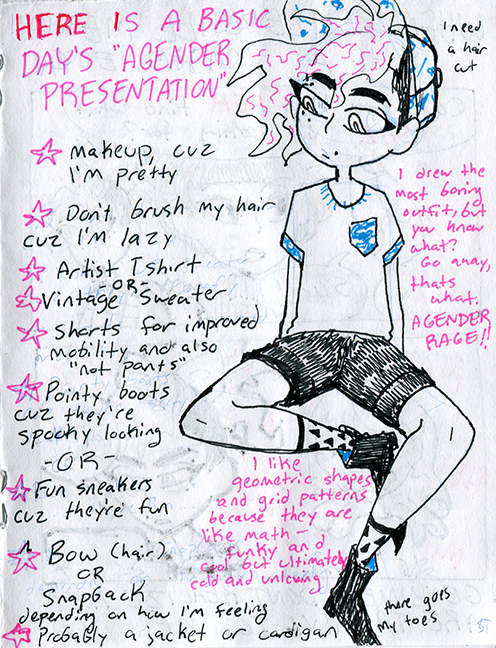 HERE IS A BASIC
DAY'S "AGENDER
PRESENTATION"
I need
a hair
cut
makeup, cuz
I'm pretty
Don't brush my hair
cuz I'm lazy
Artist Tshirt
-OR-
Vintage Sweater
Shorts for improved
mobility and also
"not pants"
Pointy boots
cuz they're
spooky looking
-OR-
Fun sneakers
cuz they're fun
Bow (hair)
OR
Snapback
depending on how I'm feeling
Probably a jacket or cardigan
I drew the
most boring
outfit, but
you know
what?
Go away,
thats
what.
AGENDER
RAGE!!
I like
geometric shapes
and grid patterns
because they are
like math -
funky and
cool but ultimately
cold and unloving
there goes
my toes